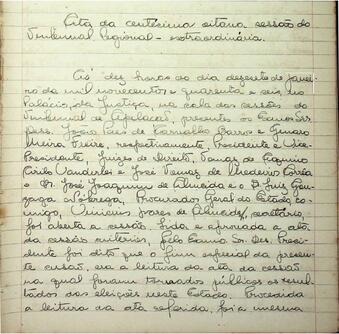 Acta da centésima oitava sessão do
Tribunal Regional - extraordinária.
Ás dez horas do dia dezesete de janei-
ro de mil novecentos e quarenta e seis, no
Palácio da Justiça, na sala das sessões do
Tribunal de Apelação, presentes os Exmos Srs.
Des. João Paes de Carvalho Barros e Genaro
Meira Freire, respectivamente, Presidente e Vice-
Presidente, Juizes de Direito, Tomaz de Aquino
Cirilo Vanderlei e José Tomaz de Medeiros Corrêa
e Dr. José Joaquim de Almeida e o Dr. Luiz Gon-
zaga Nobrega, Procurador Geral do Estado, co-
migo, Soares de Almeida, secretário,
foi aberta a sessão. Lida e aprovada a ata
da sessão anterior, pelo Exmo Sr. Des. Presi-
dente foi dito que o fim especial da presente
sessão, era a leitura da ata da sessão
na qual foram tornados públicos os resul-
tados das eleições neste Estado. Procedida
a leitura da ata referida, foi a mesma